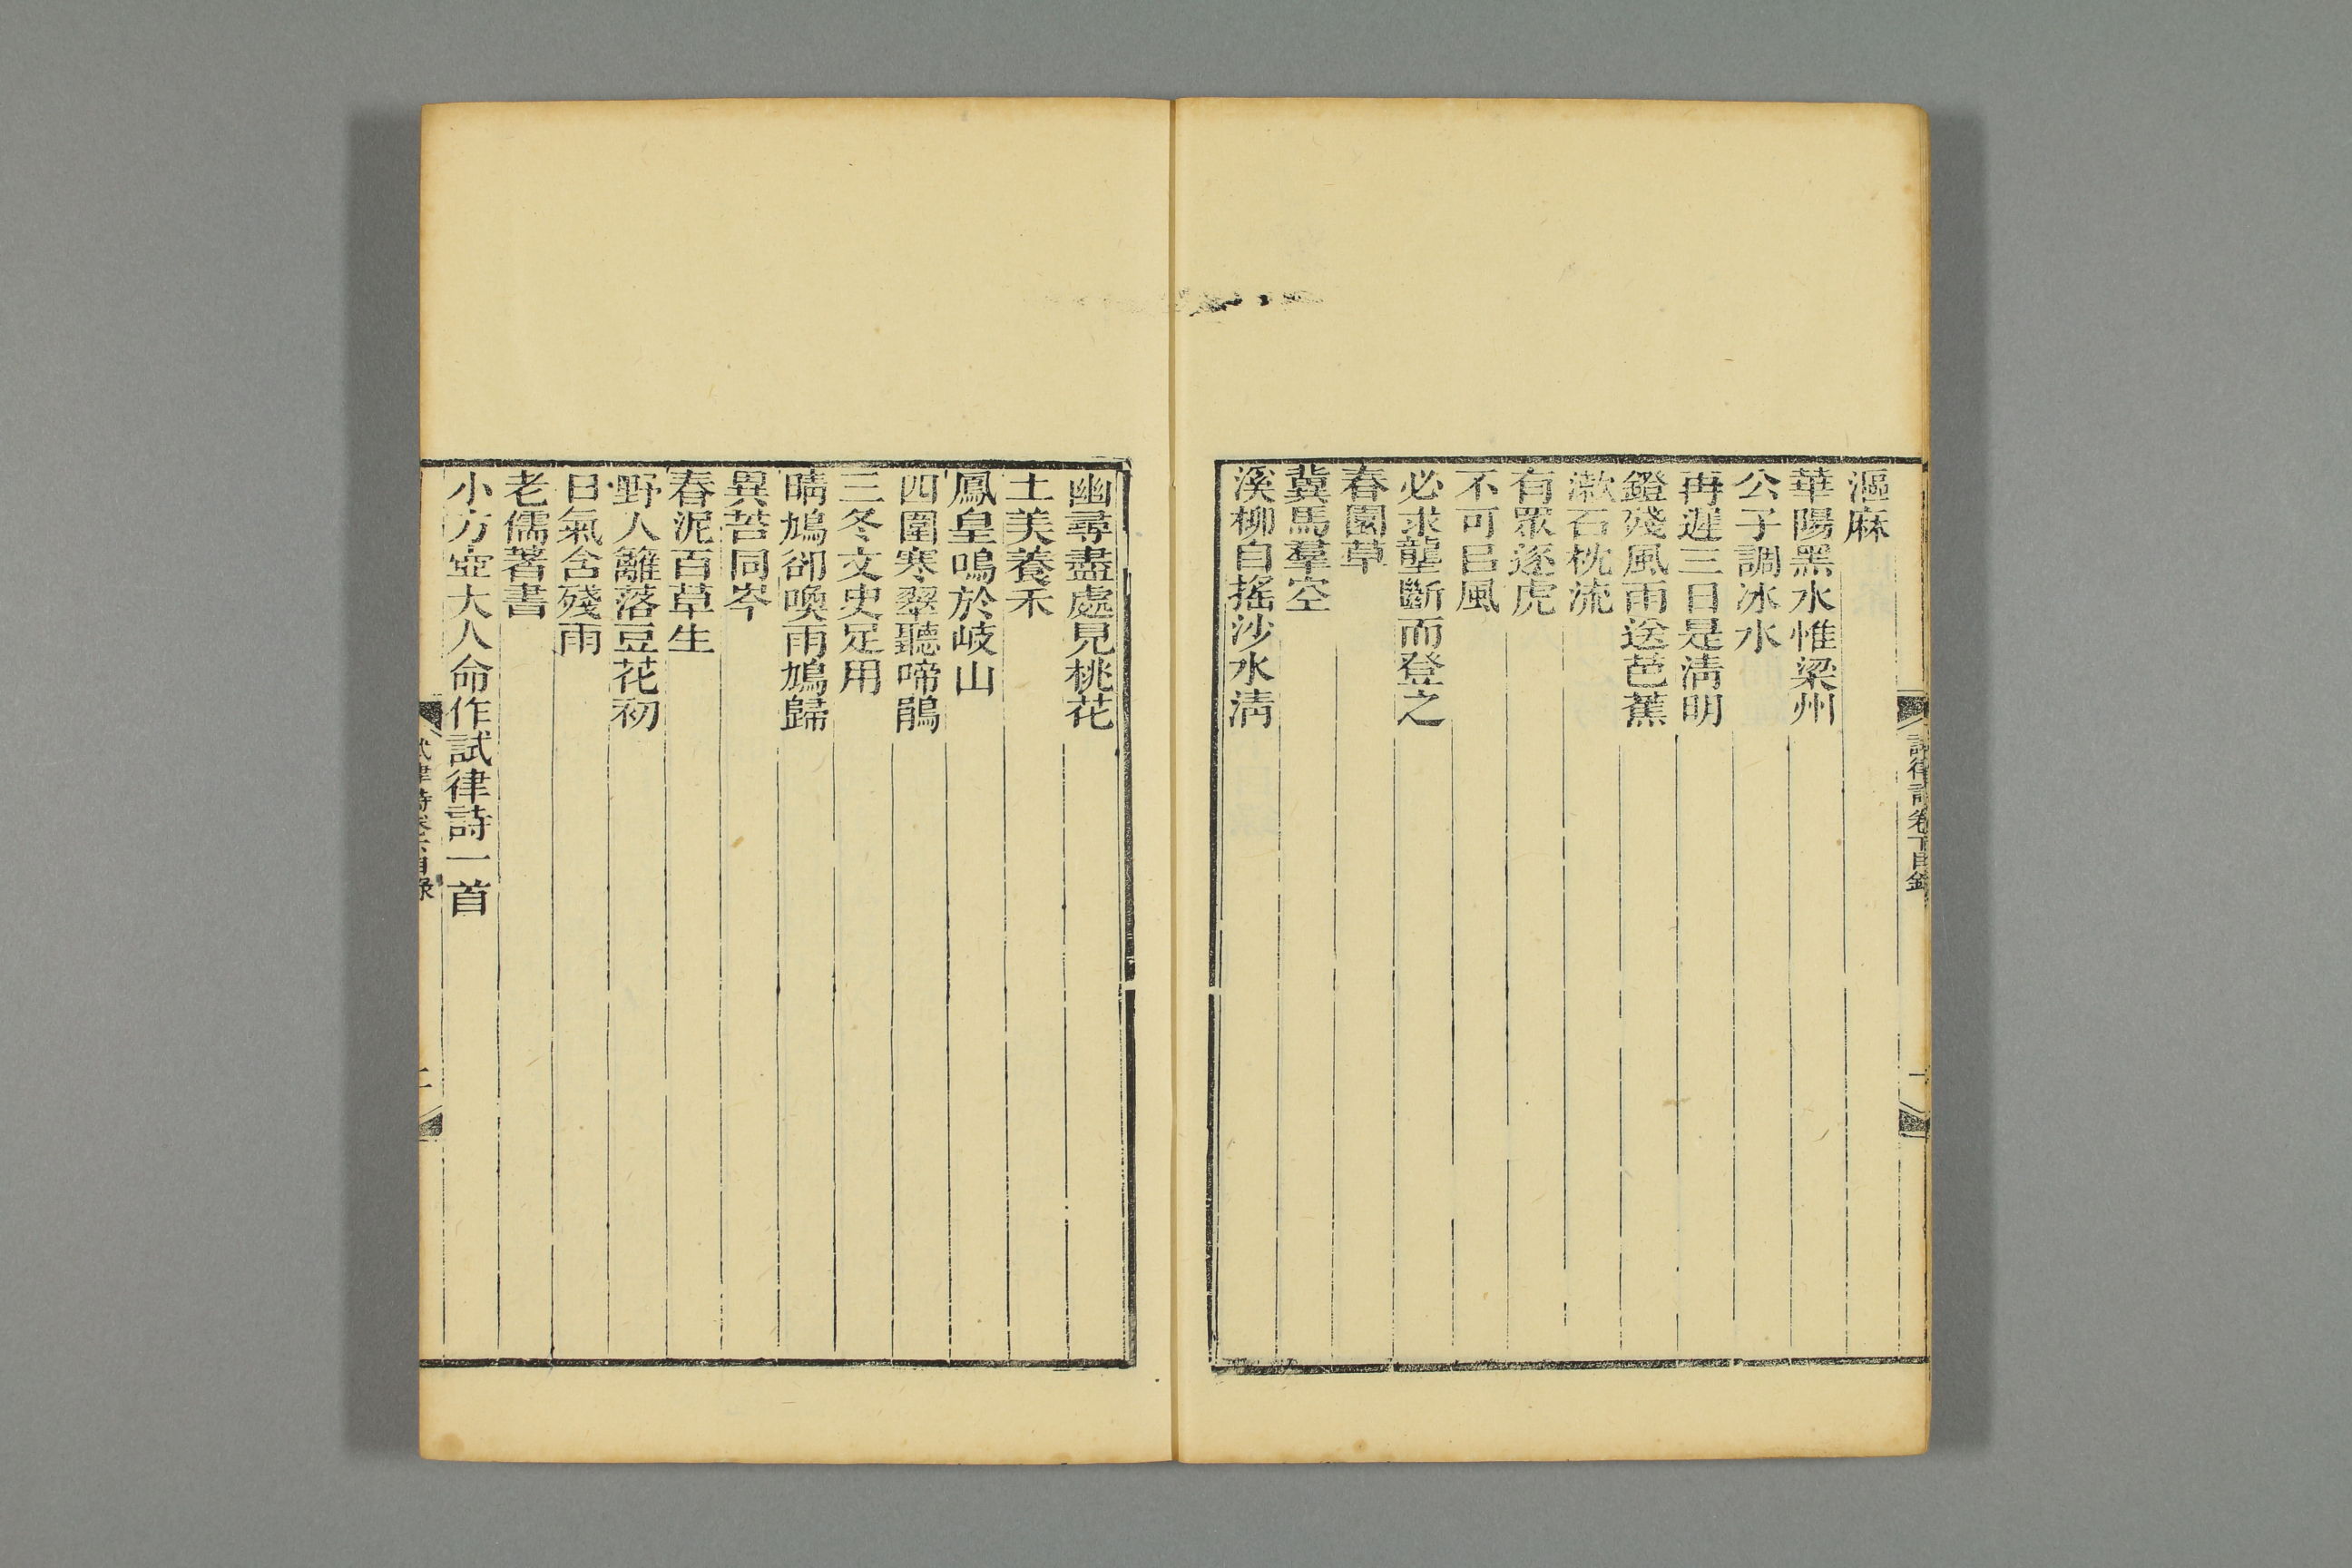 漚麻
華陽黑水惟梁州
公子調冰水
再遲三日是淸明
鐙殘風雨送芭蕉
漱石枕流
有眾逐虎
不可㠯風
必求龍斷而登之
春園草
冀馬羣空
溪柳自搖沙水淸
試律詩卷下目錄
一
幽尋盡處見桃花
土美養禾
鳳皇鳴於岐山
四圍寒翠聽啼鵑
三冬文史足用
晴鳩卻喚雨鳩歸
異苔同岑
春泥百草生
野人籬落豆花初
日氣含殘雨
老儒著書
小方壺大人命作試律詩一首
試律詩卷下目錄
二